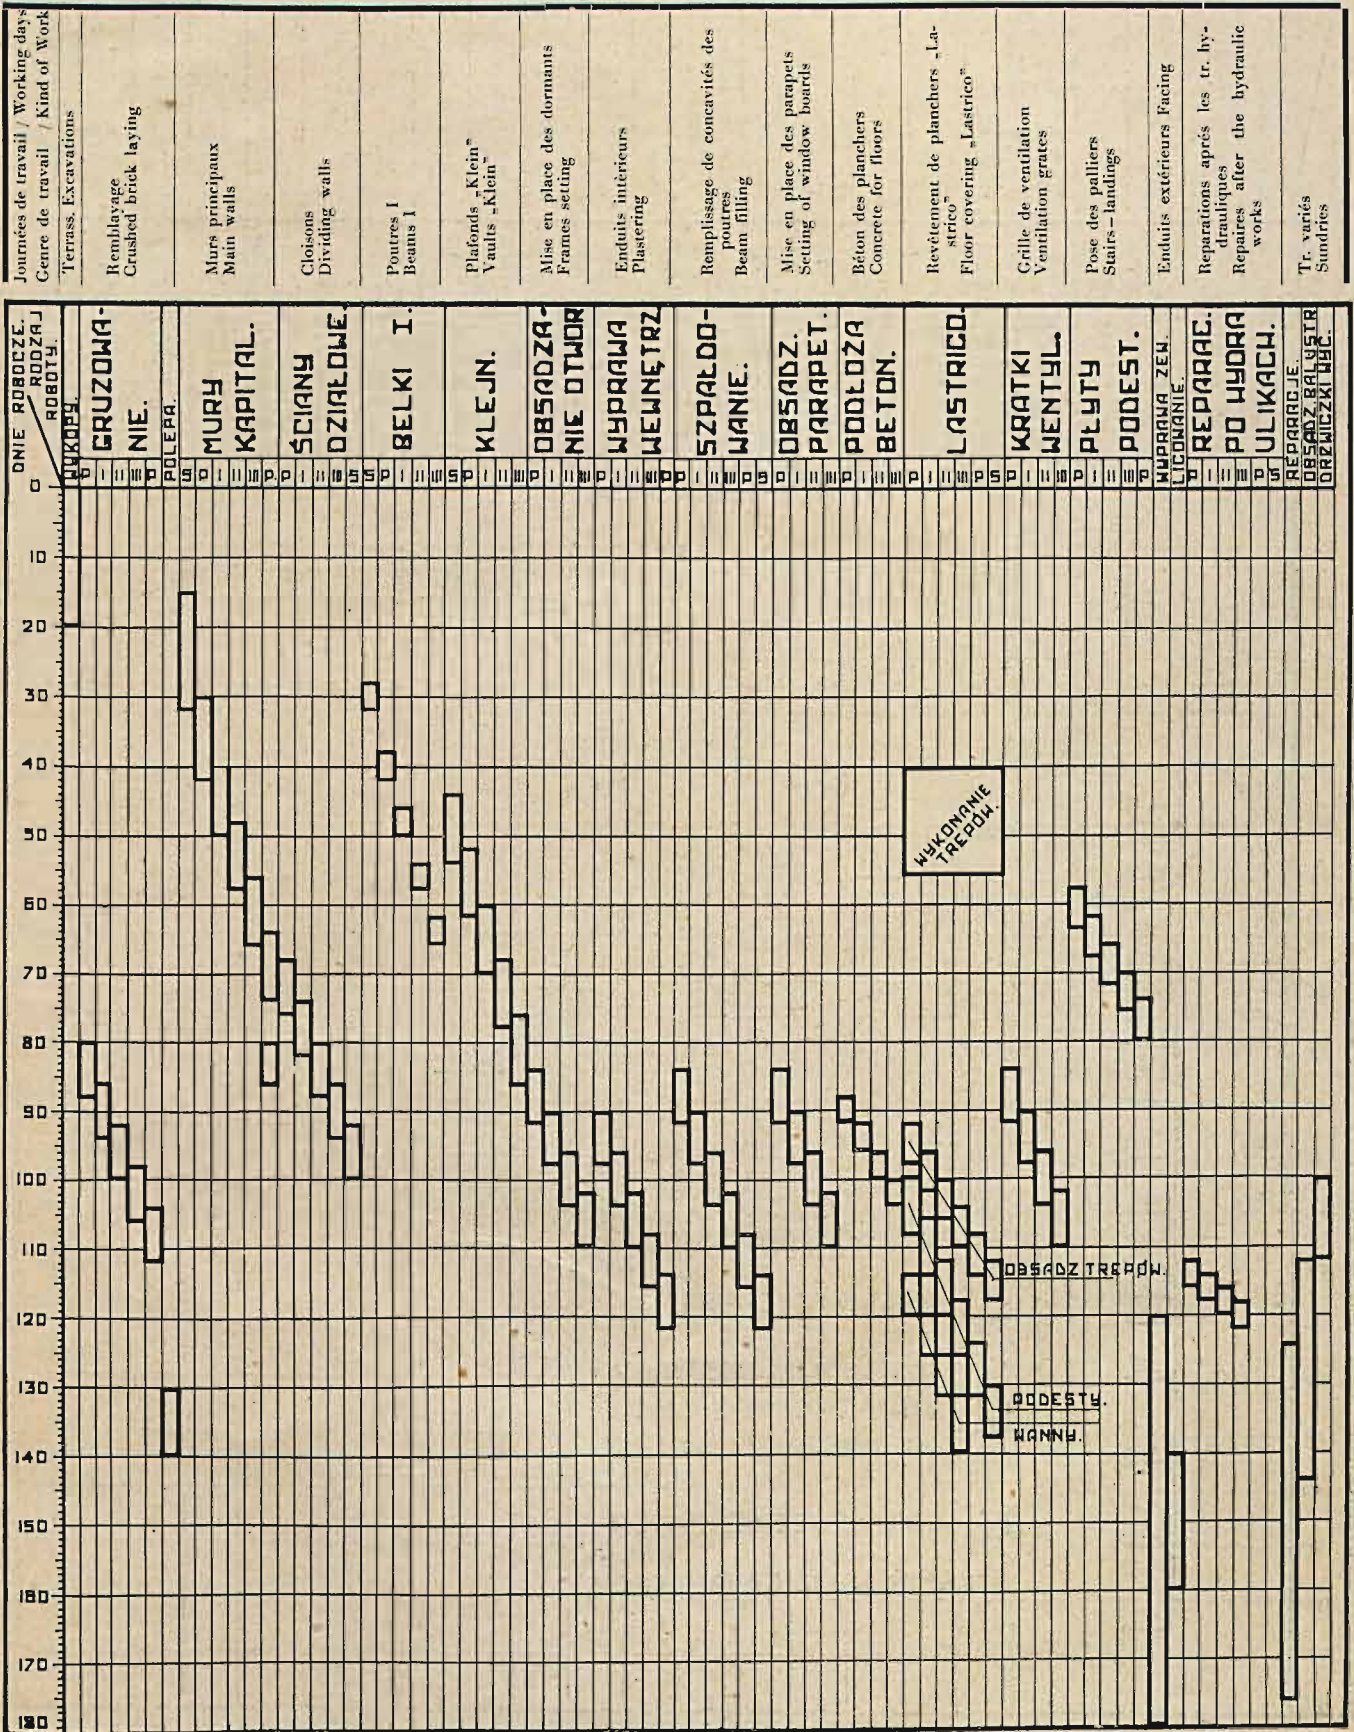 Journées de travail / Working days
Genre de travail / Kind of Work
Terrass. Excavations
Remblavage
Crushed brick laying
Murs principaux
Main walls
Cloisons
Dividing walls
Poutres I
Beams I
Plafonds „Klein”
Vaults „Klein”
Mise en place des dormants
Frames setting
Enduits intèrieurs
Plastering
Remplissage de concavités des
poutres
Beam filling
Mise en place des parapets
Seting of window boards
Béton des planchers
Concrete for floors
Revêtement de planchers „La-
strico”
Floor covering „Lastrico”
Grille de ventilation
Ventilation grates
Pose des palliers
Stairs-landings
Enduits extérieurs Facing
Reparations aprés les tr. hy-
drauliques
Repaires after the hydraulic
works
Tr. variés
Sundries
DNIE ROBOCZE.
RODZAJ
ROBOTY.
WYKOPY.
GRUZOWA-
NIE.
POLEPA.
MURY
KAPITAL.
ŚCIANY
DZIAŁOWE.
BELKI I.
KLEJN.
OBSADZA-
NIE OTWOR
WYPRAWA
WEWNĘTRZ
SZPAŁDO-
WANIE.
OBSADZ.
PARAPET.
PODŁOŻA
BETON.
LASTRICO.
KRATKI
WENTYL.
PŁYTY
PODEST.
WYPRAWA ZEW.
LICOWANIE.
REPARAC.
PO HYDRA
ULIKACH.
REPARACJE.
OBSADZ BALUSTR
DRZWICZKI WYC.
P I II III P S P I II III P P I II III S S P I II III S P I II III P I II III P I II III P P I II III P S P I II III P I II III P I II III P S P I II III P I II III P P I II III P S
0
10
20
30
40
50
60
70
80
90
100
110
120
130
140
150
160
170
180
WYKONANIE
TREPÓW.
OBSADZ TREPÓW.
PODESTY.
WANNY.